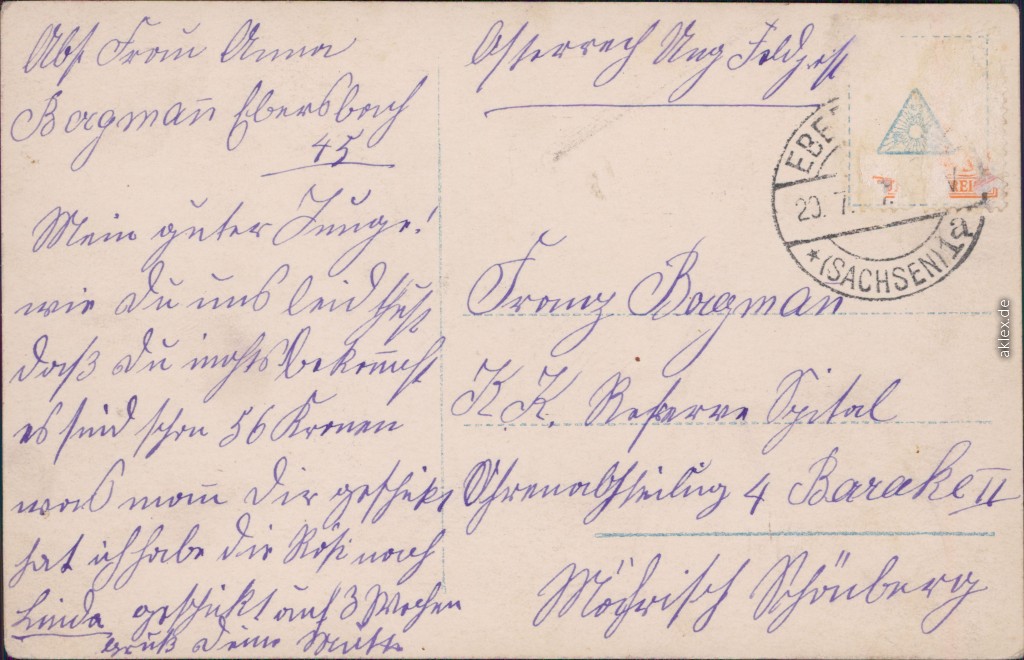 Abs. Frau Anna
Bagmann Ebersbach
45
Mein guter Junge!
wie Du uns leid thust
daß Du nichts bekommst
es sind schon 56 Kronen
was mann Dir geschikt
hat ich habe die Rösi nach
Linda geschikt auf 3 Wochen
Gruß Deine Mutter
Österreich Ung Feldpost
EBE
20. 7.
*(SACHSEN) 1a
Franz Bagman
K. K. Reserve Spital
Ohrenabtheilug 4 Barake II
Mährisch Schönberg
aklex.de